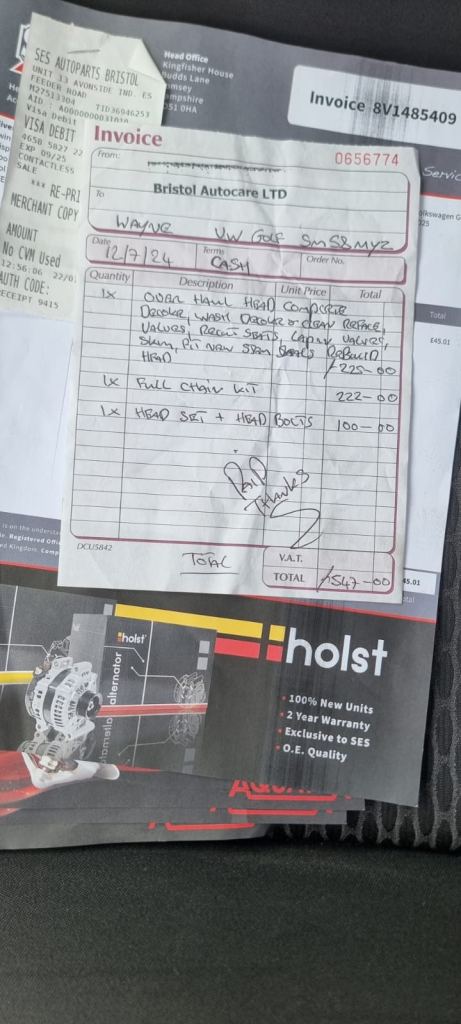 SES AUTOPARTS BRISTOL
UNIT 33 AVONSIDE IND. ES
FEEDER ROAD
M27513304 TID36946253
AID : A0000000031010
Visa Debit
VISA DEBIT
4658 5827 22
EXP 09/25
CONTACTLESS
SALE
*** RE-PRI
MERCHANT COPY
AMOUNT
No CVM Used
12:56:06 22/0
AUTH CODE:
RECEIPT 9415
Head Office
Kingfisher House
Budds Lane
omsey
mpshire
O51 0HA
Invoice 8V1485409
Servic
olkswagen G
Total
£45.01
Invoice
0656774
From:
To Bristol Autocare LTD
WAYNE VW GOLF SM58MYZ
Date 12/7/24 Terms CASH Order No.
Quantity Description Unit Price Total
1x OVAR HAUL HEAD COMPLETE
DECOKE, WASH DECOKE & CLEAN REFACE,
VALVES, RECUT SEATS, LAPIN VALVES,
SKIM, FIT NEW STEM SEALS REBUILD
HEAD £225-00
1x FULL CHAIN KIT 222-00
1x HEAD SET + HEAD BOLTS 100-00
PAID
THANKS
DCU5842
TOTAL
V.A.T.
TOTAL £547-00
is on the understa
e. Registered Offi
ed Kingdom. Comp
45.01
holst
alternator
holst
100% New Units
2 Year Warranty
Exclusive to SES
O.E. Quality